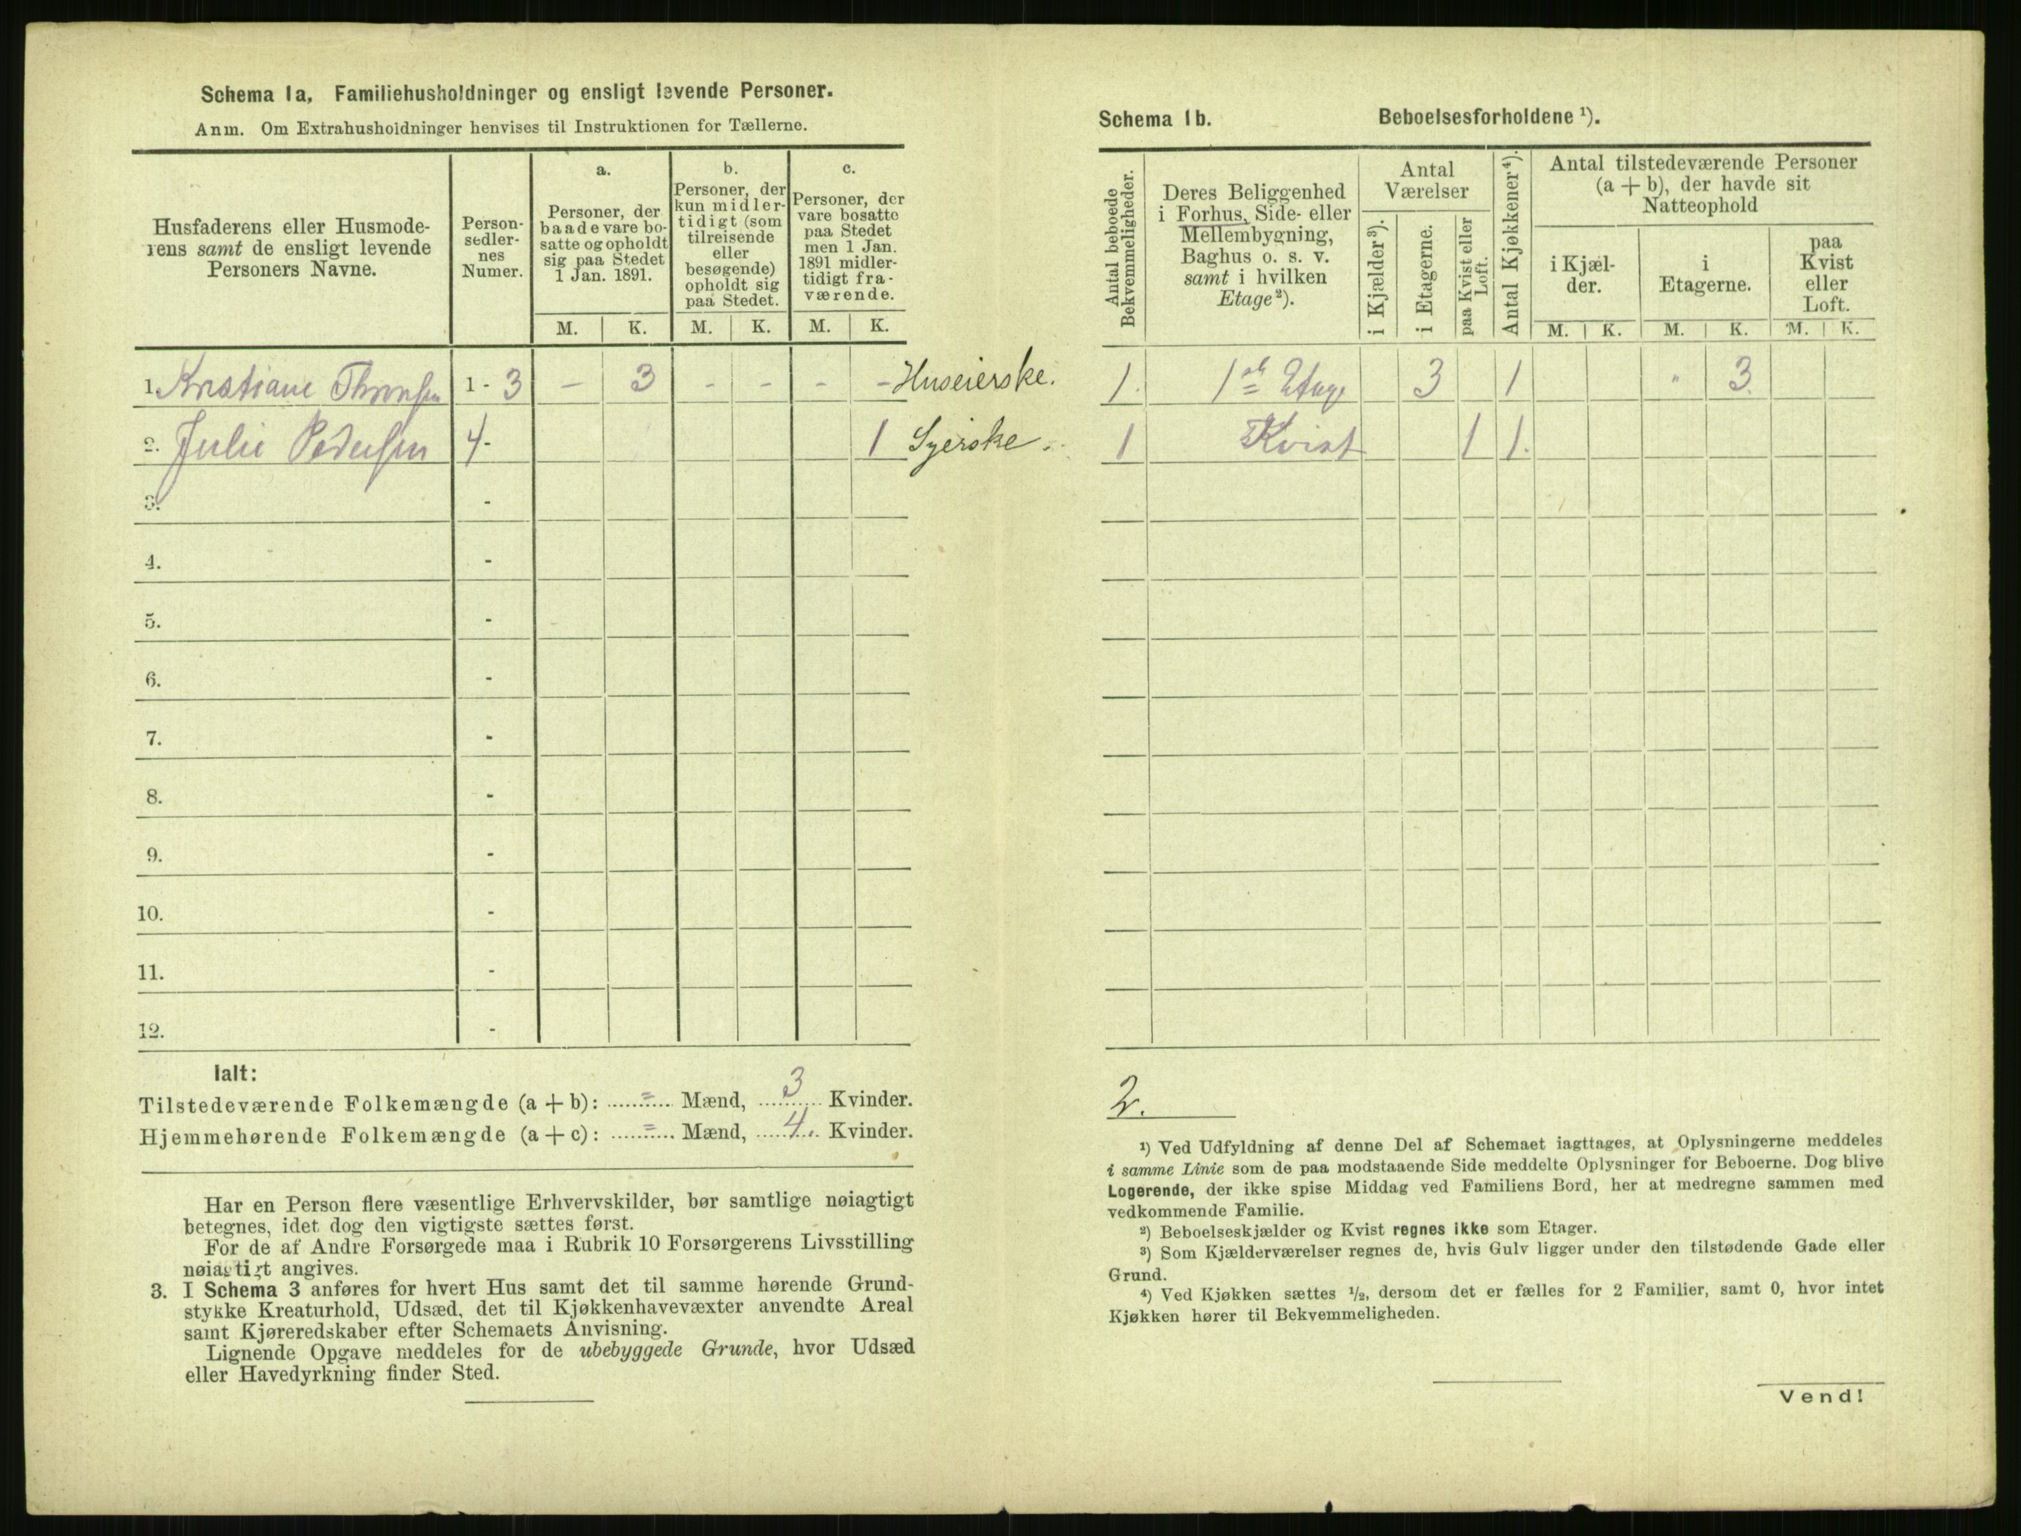 Schema 1a, Familiehusholdninger og ensligt levende Personer.
Anm. Om Extrahusholdninger henvises til Instruktionen for Tællerne.
Husfaderens eller Husmode-
rens samt de ensligt levende
Personers Navne.
Person-
sedler-
nes
Numer.
a.
Personer, der
baade vare bo-
satte og opholdt
sig paa Stedet
1 Jan. 1891.
b.
Personer, der
kun midler-
tidigt (som
tilreisende
eller
besøgende)
opholdt sig
paa Stedet.
c.
Personer, der
vare bosatte
paa Stedet
men 1 Jan.
1891 midler-
tidigt fra-
værende.
M. K. M. K. M. K.
1. Kristiane Thronsen 1 - 3 - 3 - - - - Huseierske.
2. Julie Pedersen 4 - 1 Syerske.
3. -
4. -
5. -
6. -
7. -
8. -
9. -
10. -
11. -
12. -
Ialt:
Tilstedeværende Folkemængde (a + b): = Mænd, 3 Kvinder.
Hjemmehørende Folkemængde (a + c): = Mænd, 4. Kvinder.
Har en Person flere væsentlige Erhvervskilder, bør samtlige nøiagtigt
betegnes, idet dog den vigtigste sættes først.
For de af Andre Forsørgede maa i Rubrik 10 Forsørgerens Livsstilling
nøiagtigt angives.
3. I Schema 3 anføres for hvert Hus samt det til samme hørende Grund-
stykke Kreaturhold, Udsæd, det til Kjøkkenhavevæxter anvendte Areal
samt Kjøreredskaber efter Schemaets Anvisning.
Lignende Opgave meddeles for de ubebyggede Grunde, hvor Udsæd
eller Havedyrkning finder Sted.
Schema 1b. Beboelsesforholdene ¹).
Antal beboede
Bekvemmeligheder.
Deres Beliggenhed
i Forhus, Side- eller
Mellembygning,
Baghus o. s. v.
samt i hvilken
Etage ²).
Antal
Værelser
i Kjælder ³).
i Etagerne.
paa Kvist eller
Loft.
Antal Kjøkkener ⁴).
Antal tilstedeværende Personer
(a + b), der havde sit
Natteophold
i Kjæl-
der.
i
Etagerne.
paa
Kvist
eller
Loft.
M. K. M. K. M. K.
1. 1ste Etage 3 1 " 3
1 Kvist 1 1.
2.
¹) Ved Udfyldning af denne Del af Schemaet iagttages, at Oplysningerne meddeles
i samme Linie som de paa modstaaende Side meddelte Oplysninger for Beboerne. Dog blive
Logerende, der ikke spise Middag ved Familiens Bord, her at medregne sammen med
vedkommende Familie.
²) Beboelseskjælder og Kvist regnes ikke som Etager.
³) Som Kjælderværelser regnes de, hvis Gulv ligger under den tilstødende Gade eller
Grund.
⁴) Ved Kjøkken sættes ½, dersom det er fælles for 2 Familier, samt 0, hvor intet
Kjøkken hører til Bekvemmeligheden.
Vend!